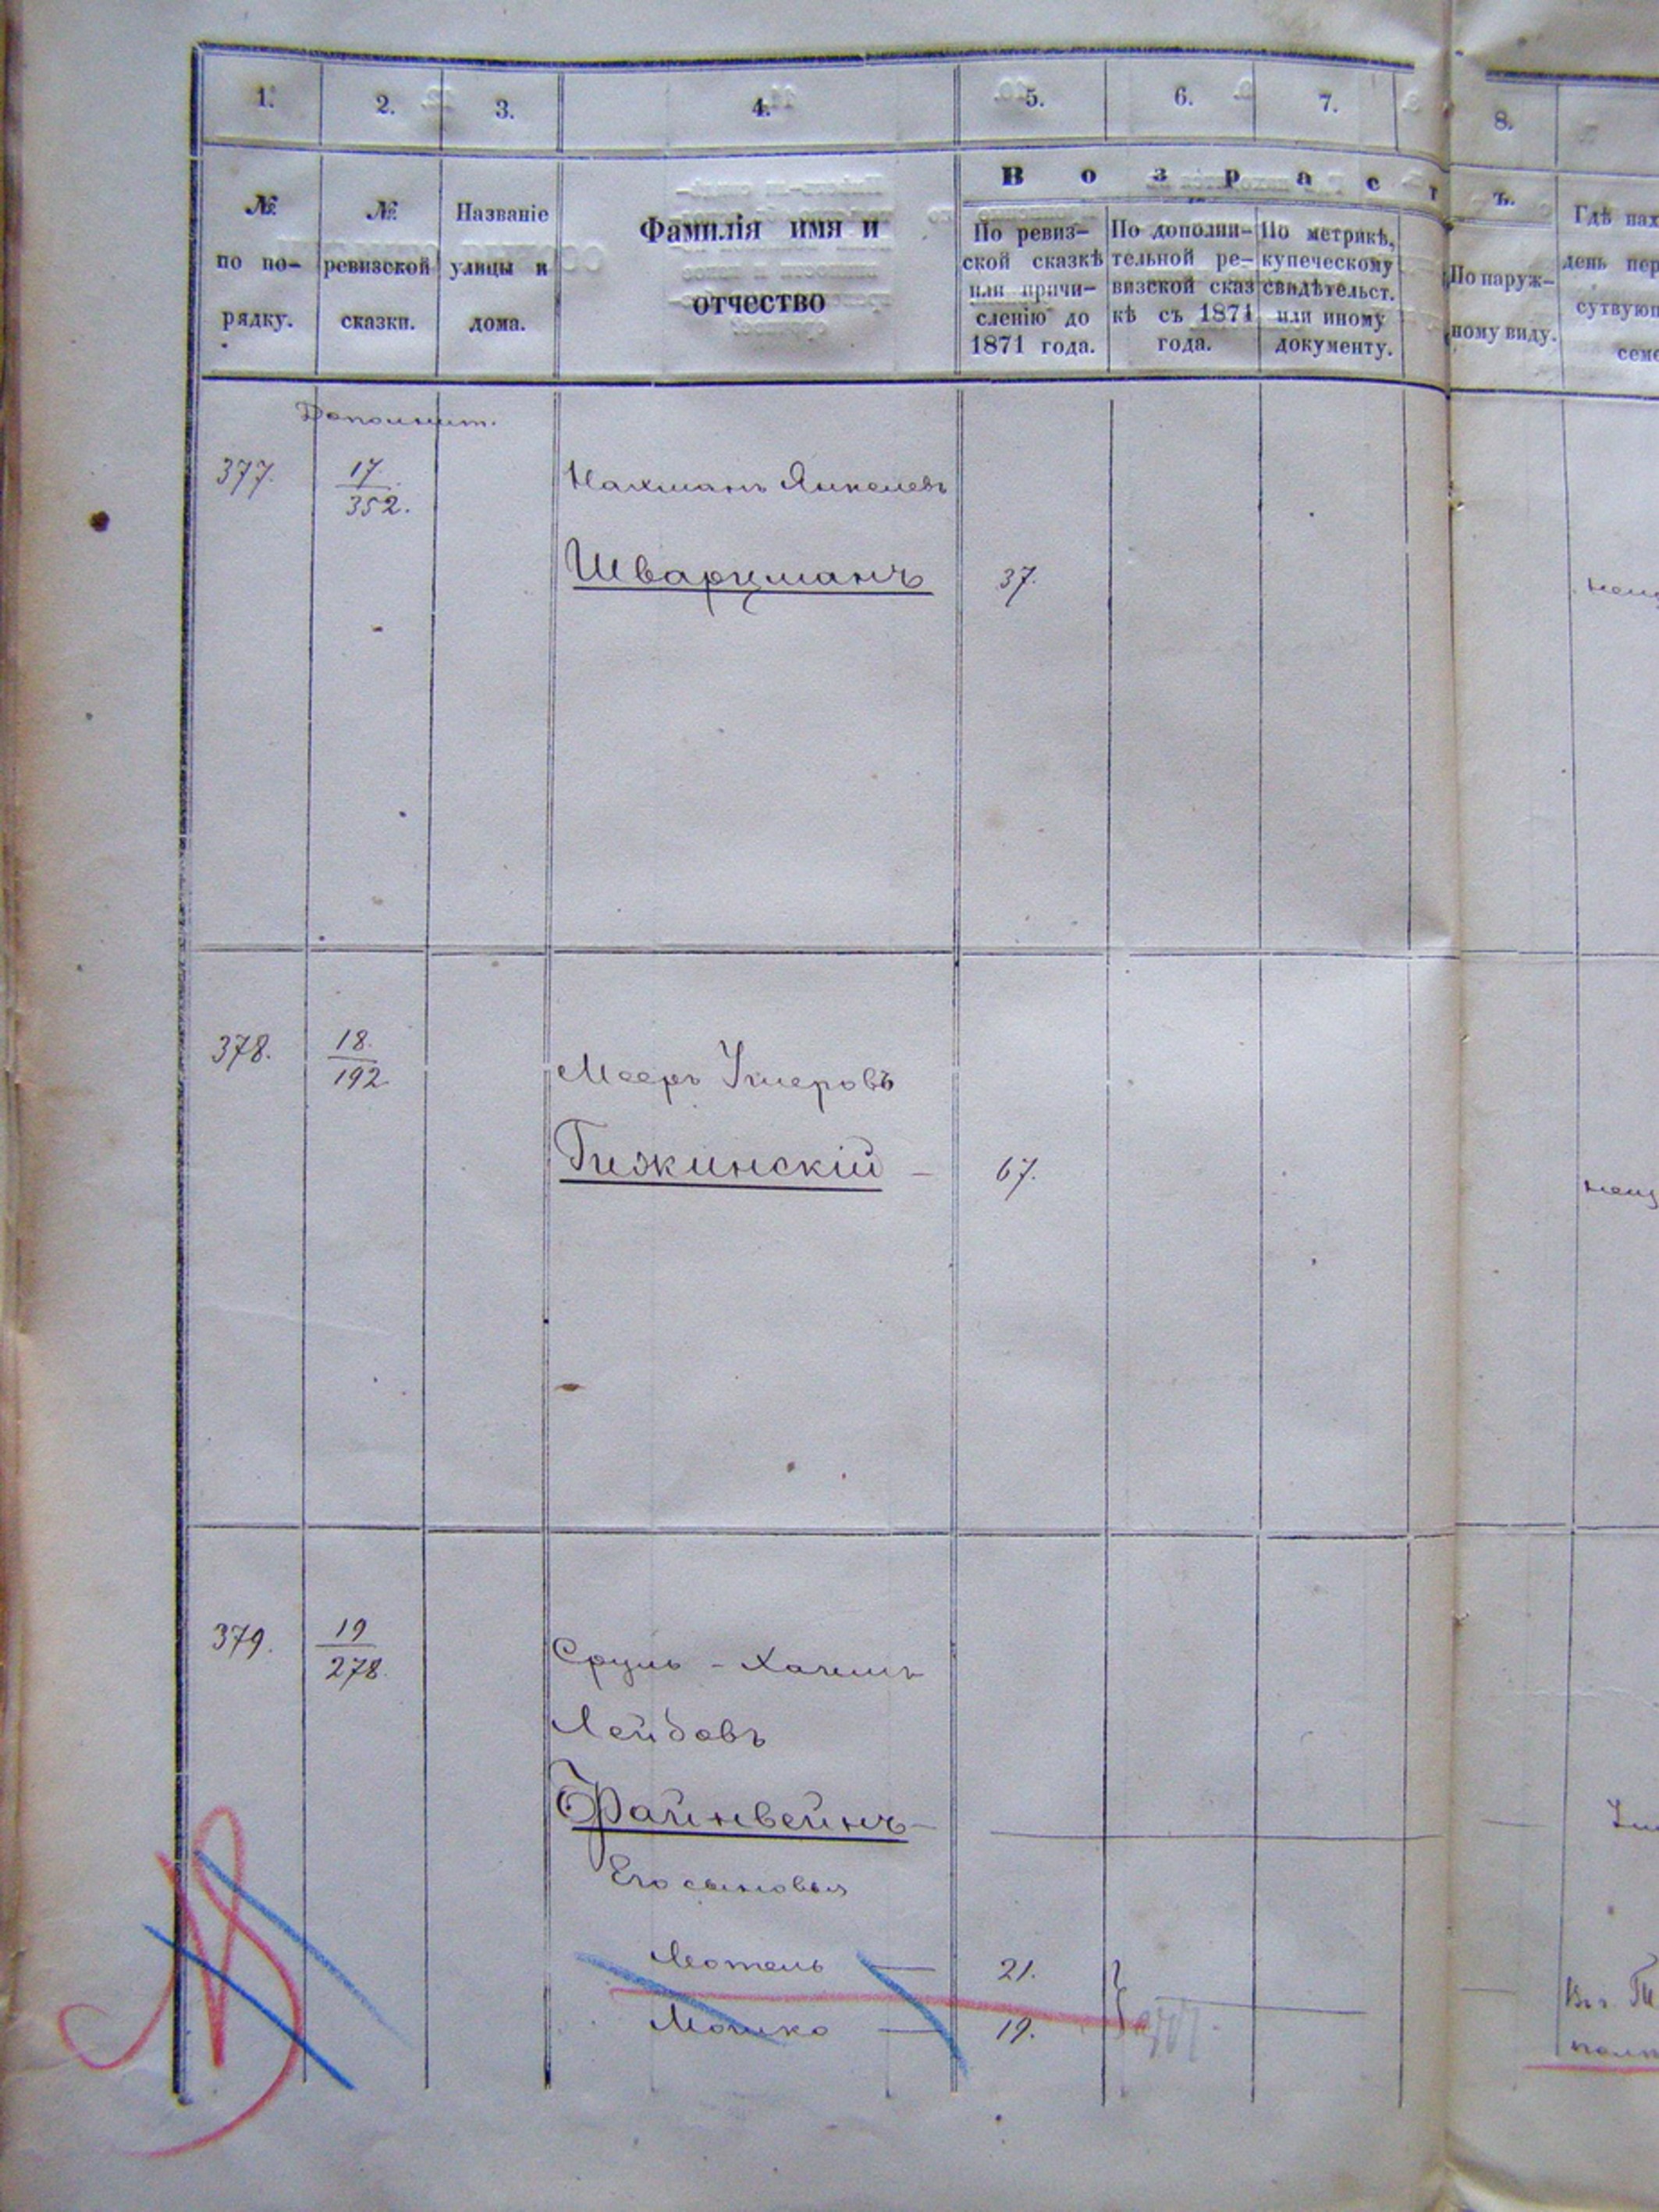 1. 2. 3. 4. 5. 6. 7. 8.
№ по по-рядку.
№ ревизской сказки.
Названіе улицы и дома.
Фамилія имя и отчество
Возраст
ъ.
По ревиз-
ской сказкѣ
или причи-
сленію до
1871 года.
По дополни-
тельной ре-
визской сказ
кѣ съ 1871
года.
По метрикѣ,
купеческому
свидѣтельст.
или иному
документу.
По наруж-
ному виду.
Гдѣ нах
день пер
сутвую
сем
Дополнит.
377. 17/352. Нахманъ Янкелевъ
Шварцманъ 37.
неиз
378. 18/192 Мееръ Умеровъ
Гижинскій — 67.
неиз
379. 19/278 Сруль - Хаимъ
Лейбовъ
Файнвейнъ —
Его сыновья
Мотель — 21.
Мошко — 19.